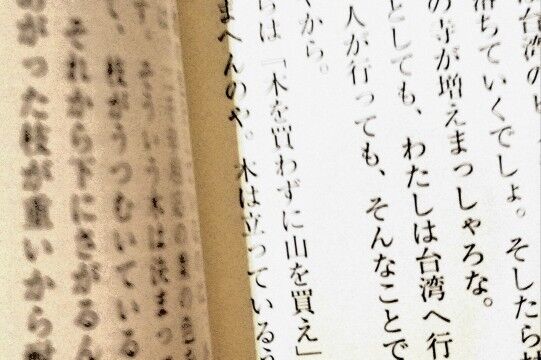 台湾の
落ちていくでしょ。そしたら
の寺が増えまっしゃろな。
としても、わたしは台湾へ行
人が行っても、そんなことで
から。
ちは『木を買わずに山を買え』
まへんのや。木は立っている
す。そういう木は
枝がうつむいている
それから下にさがるん
がった枝が重いから